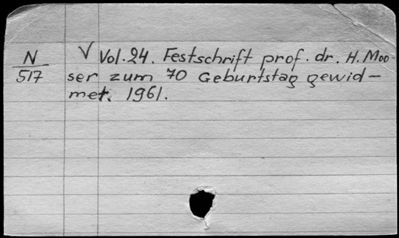 N √ Vol. 24. Festschrift prof. dr. H. Moo-
517 ser zum 70 Geburtstag gewid-
met. 1961.